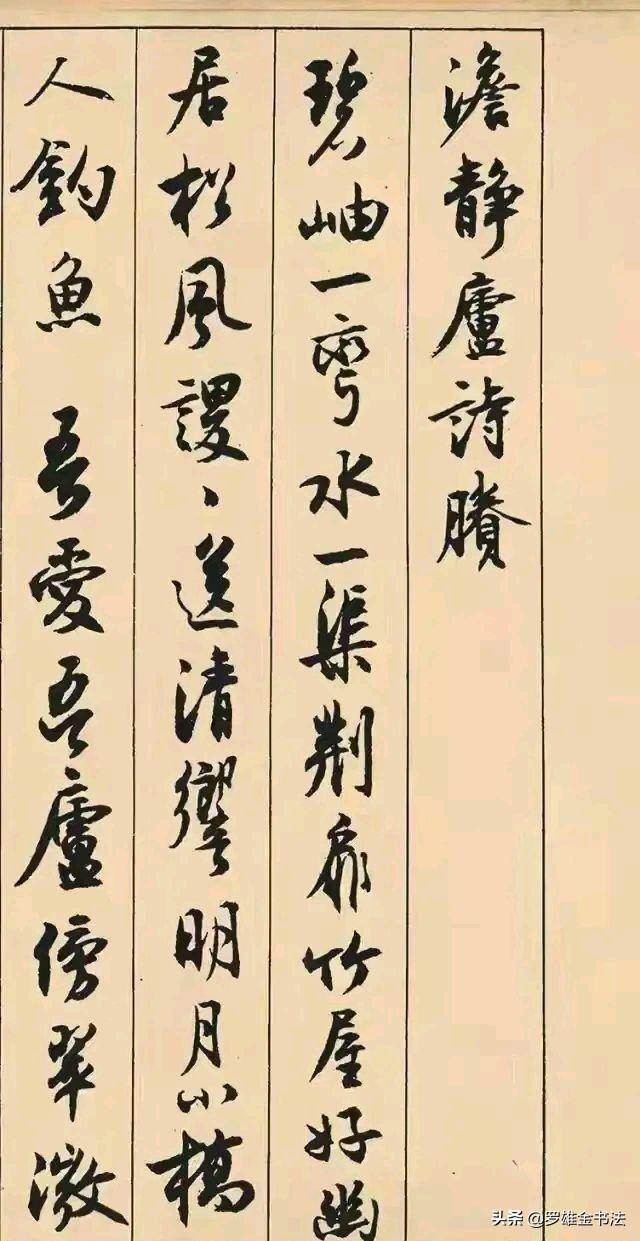 澹静廬詩賸
碧岫一彎水一渠荆扉竹屋好幽
居松風謖〻送清響明月小橋
人釣魚 吾愛吾廬傍翠微
头条 @罗雄金书法